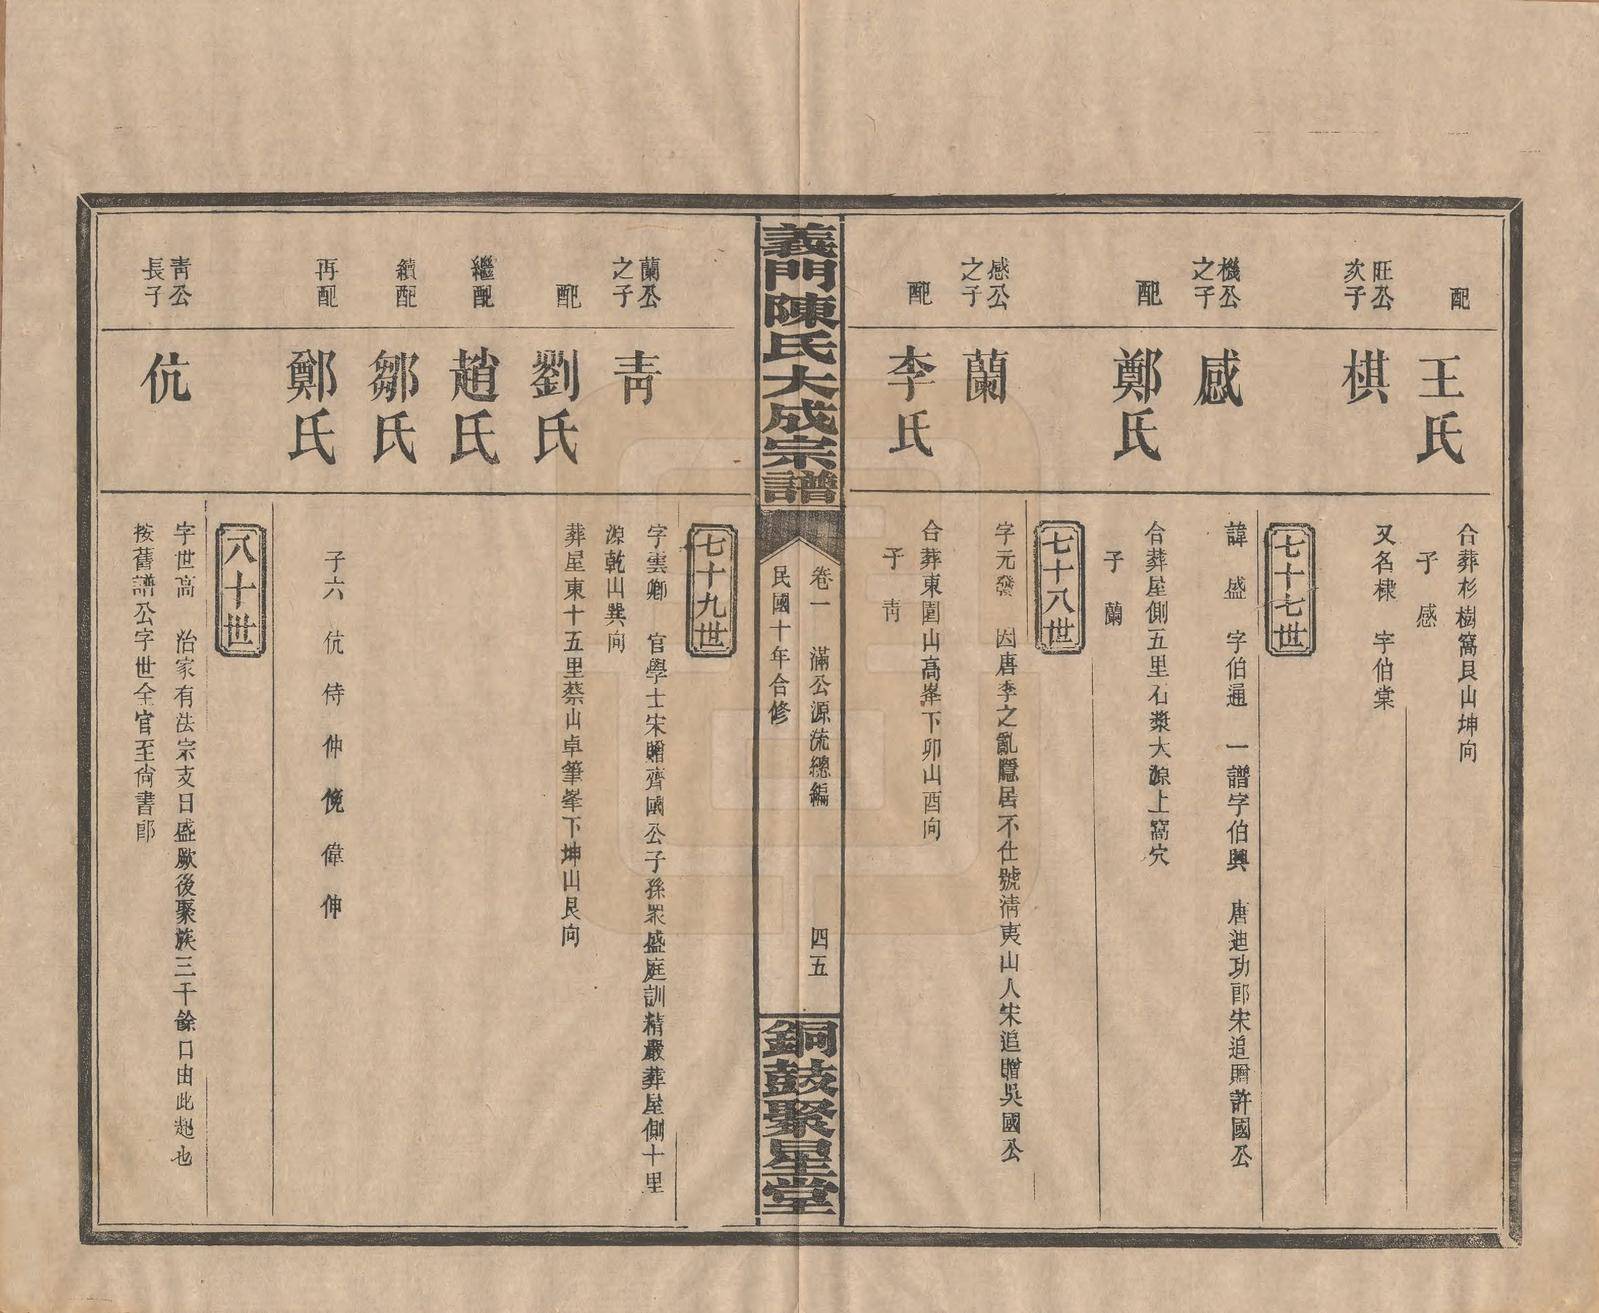 配
王氏
合葬杉樹窩艮山坤向
子感
旺公次子
棋
又名棣　字伯棠
七十七世
機公之子
感
諱盛　字伯通　一譜字伯興　唐迪功郎宋追贈許國公
配
鄭氏
合葬屋側五里石漿大源上窩穴
子蘭
七十八世
感公之子
蘭
字元發　因唐季之亂隱居不仕號清夷山人宋追贈吳國公
配
李氏
合葬東園山高峯下卯山酉向
子靑
義門陳氏大成宗譜
卷一　滿公源流總編　四五
民國十年合修
銅鼓聚星堂
七十九世
蘭公之子
靑
字雲卿　官學士宋贈齊國公子孫衆盛庭訓精嚴葬屋側十里
源乾山巽向
配
劉氏
葬屋東十五里蔡山卓筆峯下坤山艮向
繼配
趙氏
續配
鄒氏
再配
鄭氏
子六伉侍仲俛偉伸
八十世
靑公長子
伉
字世高　治家有法宗支日盛厥後聚族三千餘口由此起也
按舊譜公字世全官至尙書郎